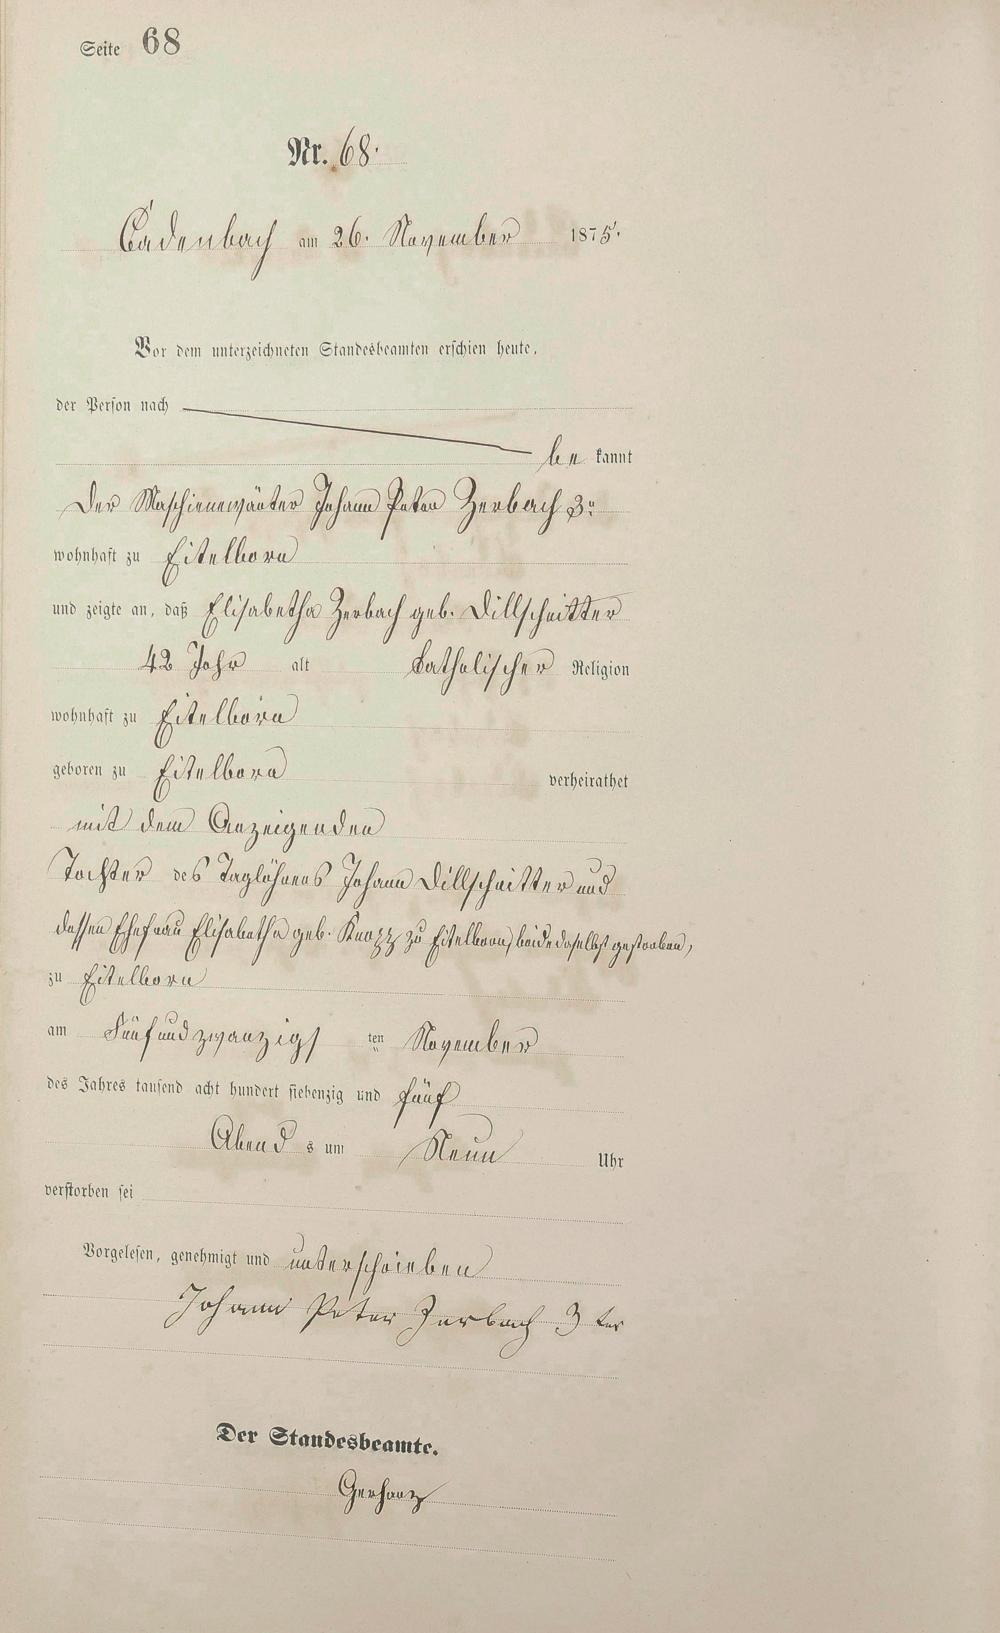 Seite 68
Nr. 68.
Cadenbach am 26. November 1875.
Vor dem unterzeichneten Standesbeamten erschien heute,
der Person nach
be kannt
Der Maschienewärter Johann Peter Zerbach 3r
wohnhaft zu Eitelborn
und zeigte an, daß Elisabetha Zerbach geb. Dillschnitter
42 Jahr alt katholischer Religion
wohnhaft zu Eitelborn
geboren zu Eitelborn verheirathet
mit dem Anzeigenden
Tochter des Taglöhners Johann Dillschnitter und
dessen Ehefrau Elisabetha geb. Knopp zu Eitelborn, beide daselbst gestorben,
zu Eitelborn
am Fünfundzwanzigs ten November
des Jahres tausend acht hundert siebenzig und fünf
Abend s um Neun Uhr
verstorben sei
Vorgelesen, genehmigt und unterschrieben
Johann Peter Zerbach 3 ter
Der Standesbeamte.
Gerharz